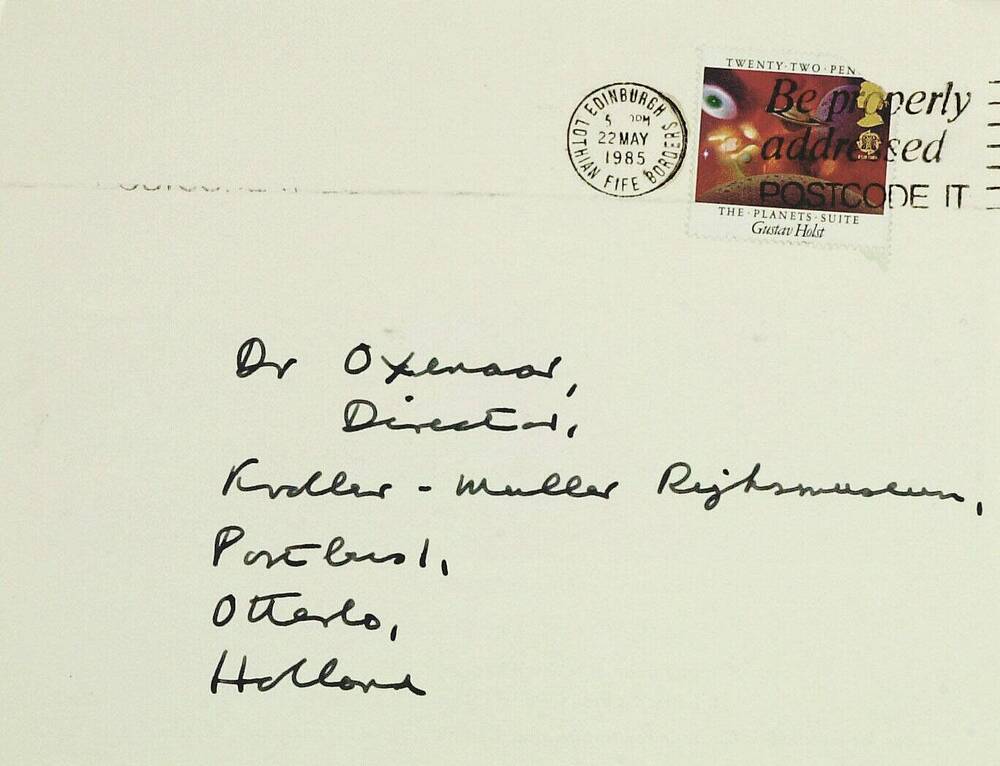 TWENTY·TWO·PEN
EDINBURGH
LOTHIAN FIFE BORDERS
22 MAY
1985
Be properly
addressed
POSTCODE IT
THE·PLANETS·SUITE
Gustav Holst
Dr Oxenaar,
Director,
Kroller - Muller Rijksmuseum,
Postbus 1,
Otterlo,
Holland